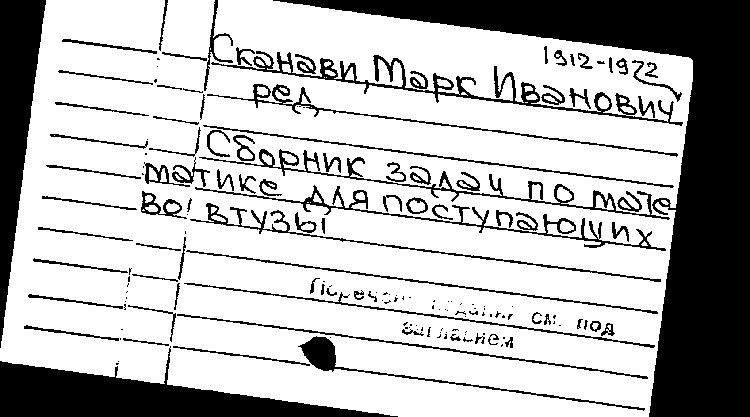 1912-1972
Сканави, Марк Иванович
ред.
Сборник задач по мате
матике для поступающих
во втузы
Перечень изданий см. под
заглавием